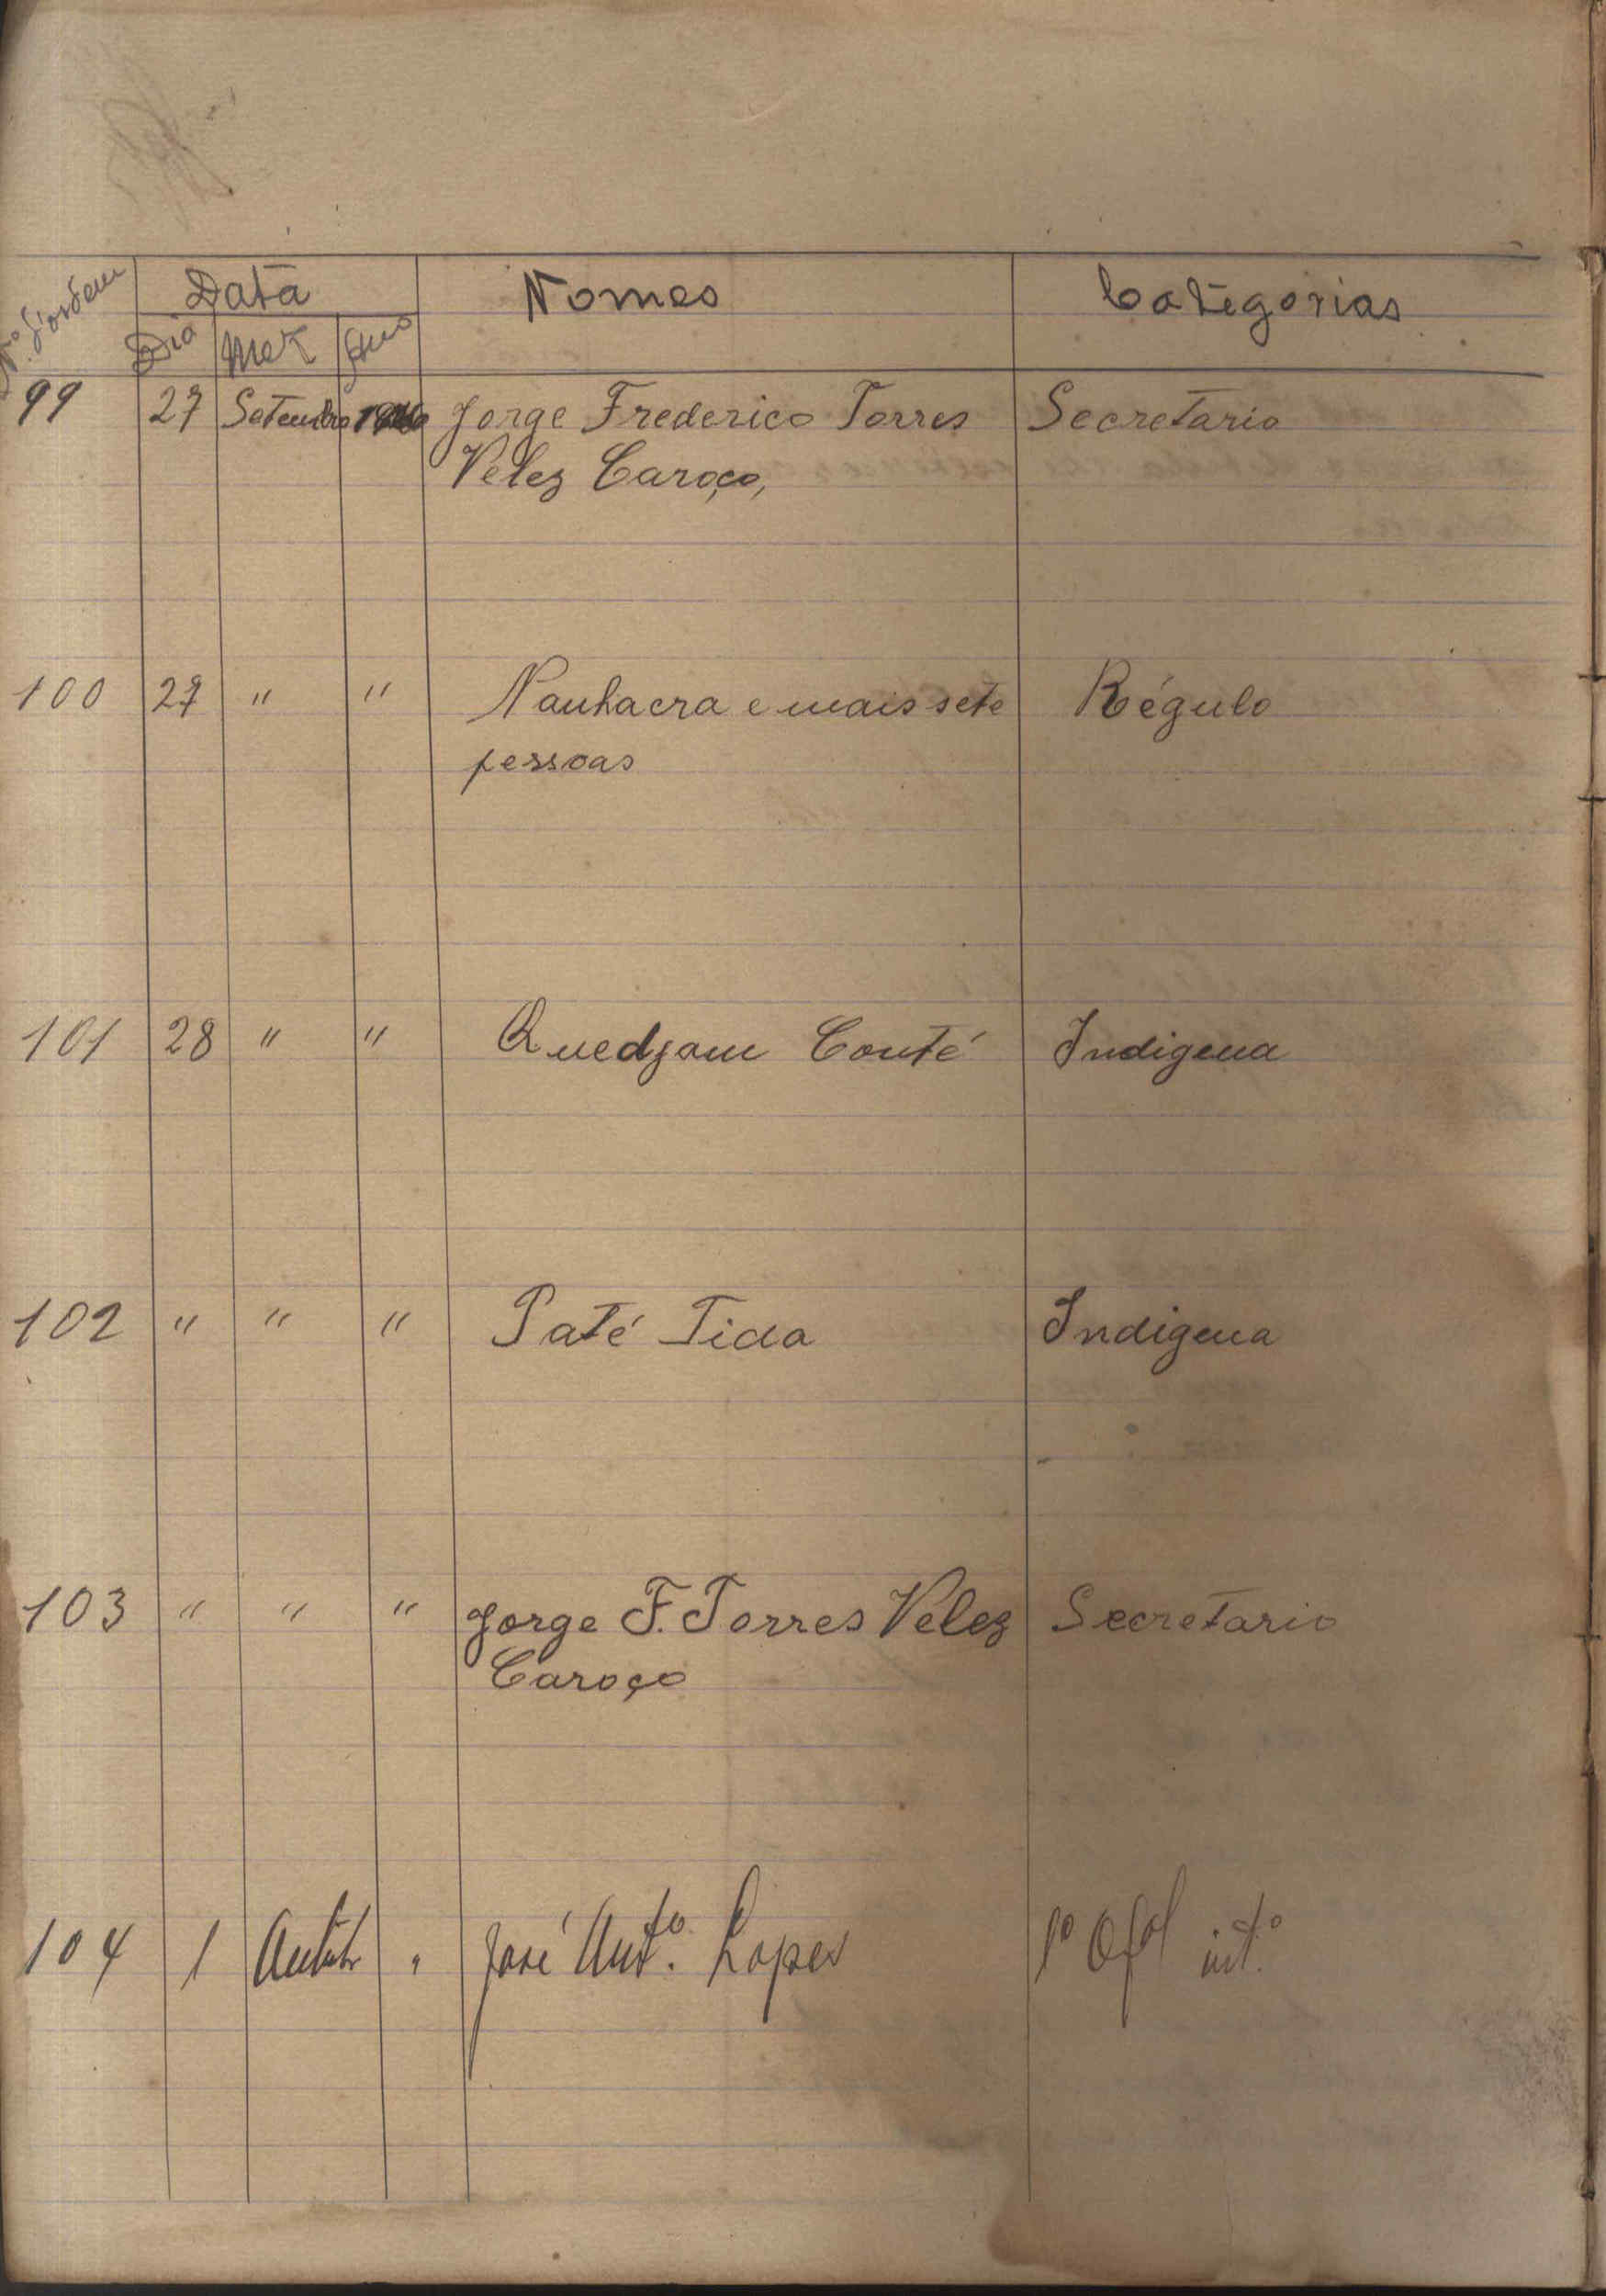 Nº d'ordem Data Nomes Categorias
Dia Mez Ano
99 27 Setembro Jorge Frederico Torres Secretario
Velez Caroço,
100 27 " " Nanhacra e mais sete Régulo
pessoas
101 28 " " Quedjam Conté Indigena
102 " " " Paté Tida Indigena
103 " " " Jorge F. Torres Velez Secretario
Caroço
104 1 " José Antº. Lopes 1º Ofal intº.